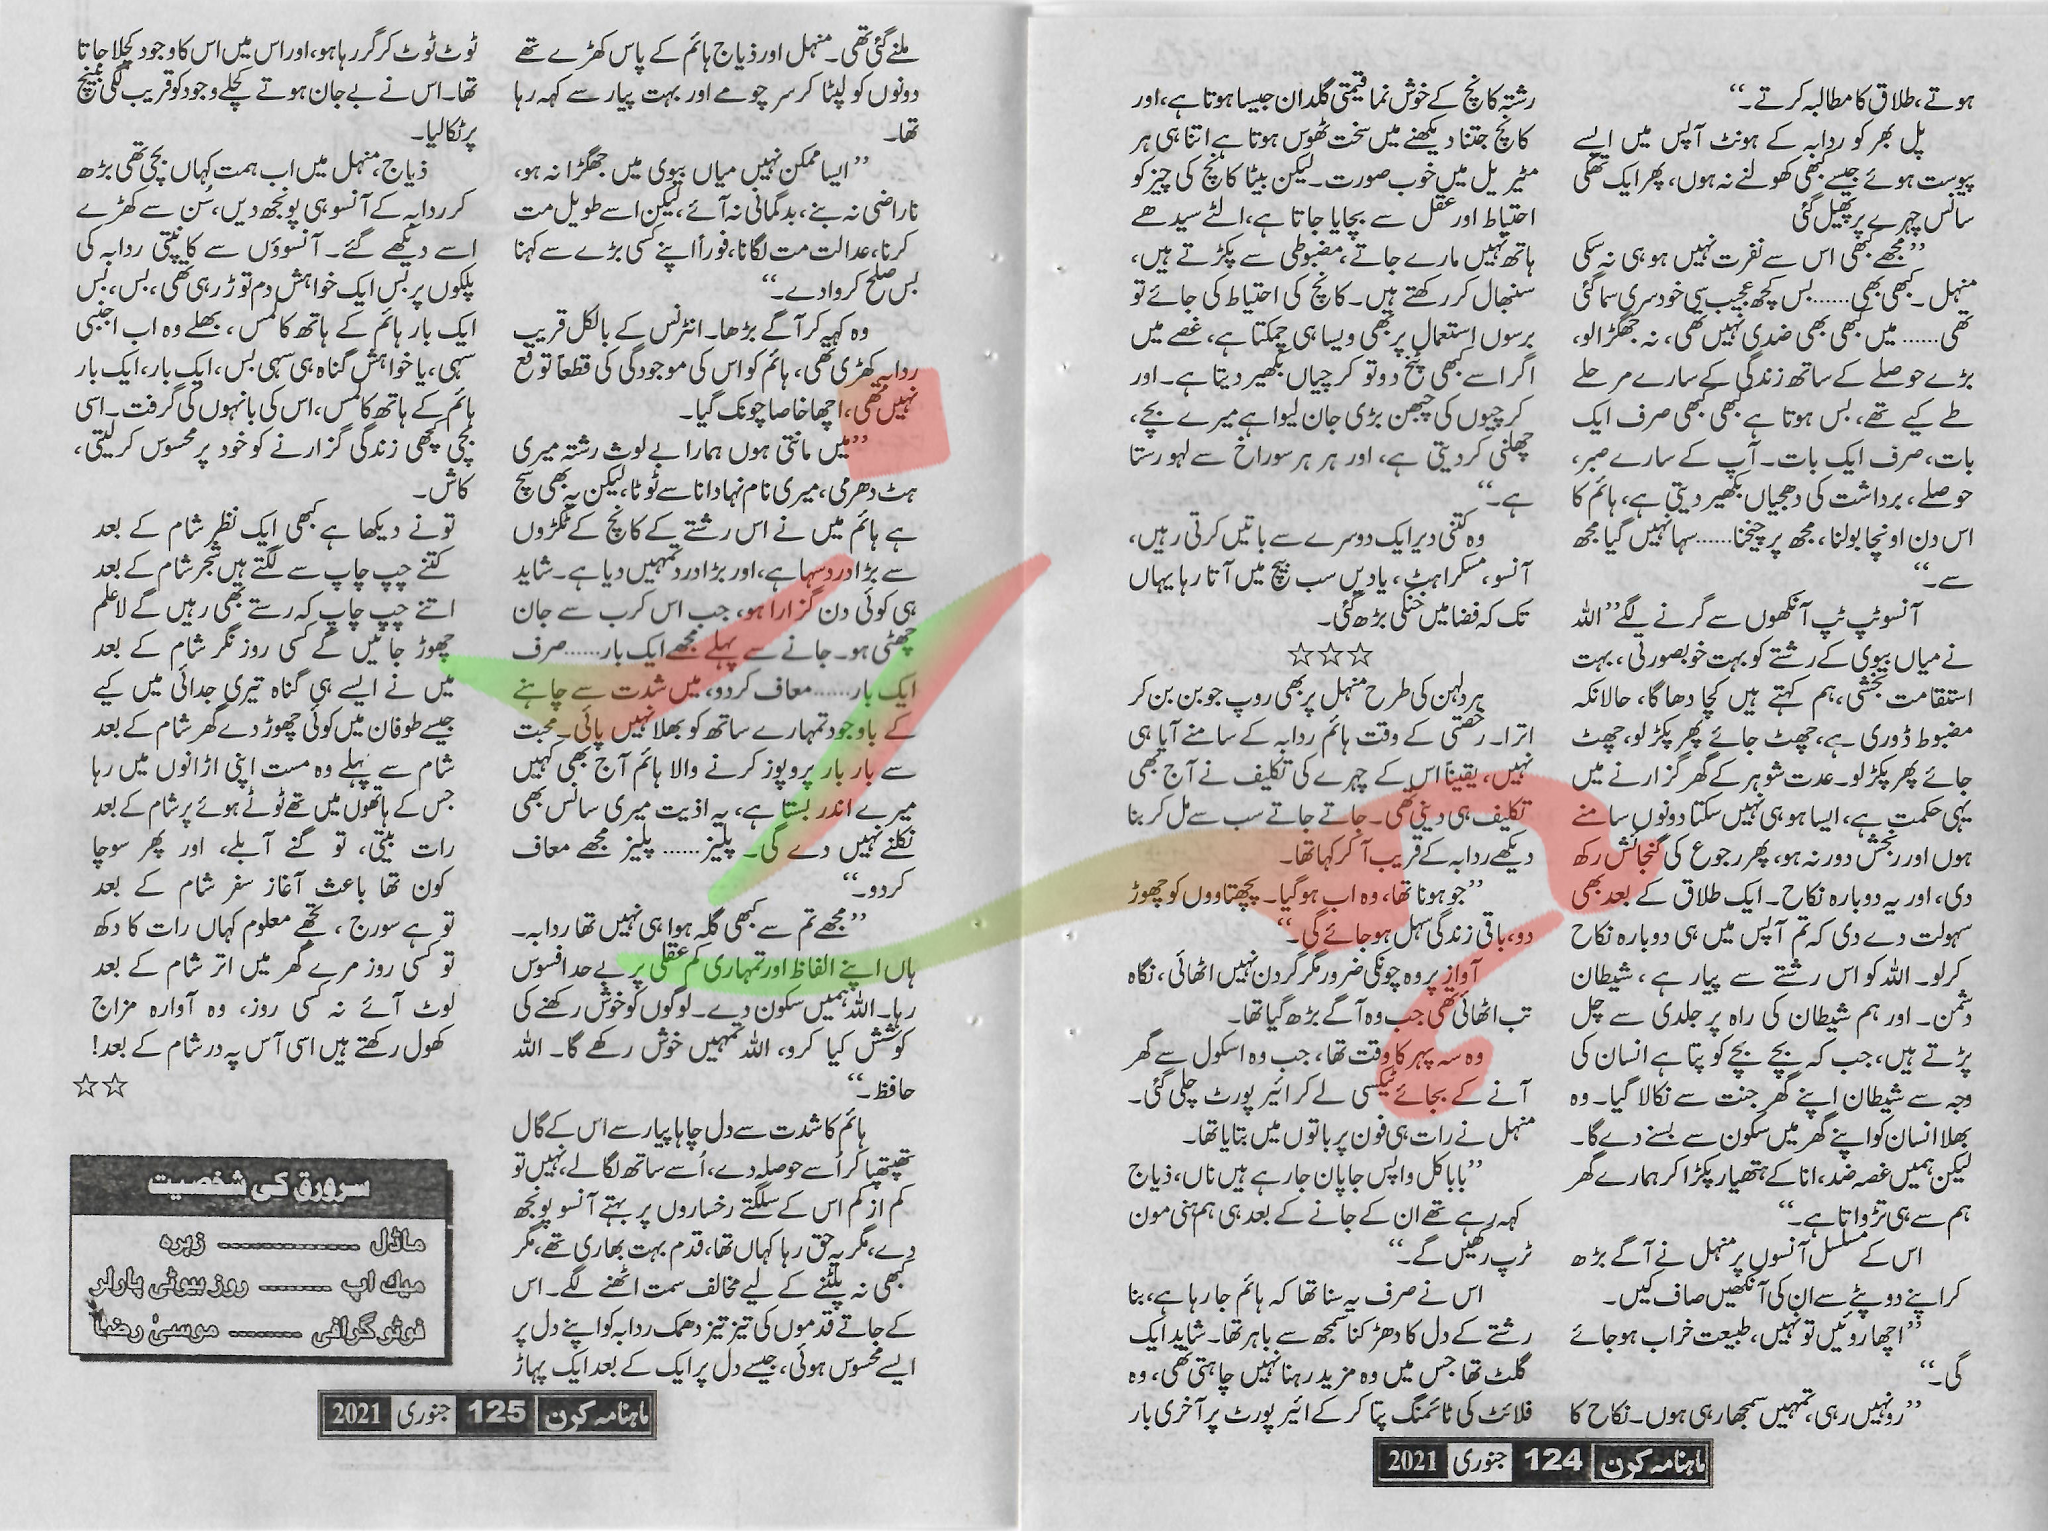 ہوتے، طلاق کا مطالبہ کرتے۔“
پل بھر کو ردابہ کے ہونٹ آپس میں ایسے
پیوست ہوئے جیسے کبھی کھولنے نہ ہوں، پھر ایک تھکی
سانس چہرے پر پھیل گئی
”مجھے کبھی اس سے نفرت نہیں ہو ہی نہ سکی
منہل۔ کبھی بھی...... بس کچھ عجیب سی خود سری سما گئی
تھی...... میں کبھی بھی ضدی نہیں تھی، نہ جھگڑالو،
بڑے حوصلے کے ساتھ زندگی کے سارے مرحلے
طے کیے تھے، بس ہوتا ہے کبھی کبھی صرف ایک
بات، صرف ایک بات۔ آپ کے سارے صبر،
حوصلے، برداشت کی دھجیاں بکھیر دیتی ہے، ہائم کا
اس دن اونچا بولنا، مجھ پر چیخنا...... سہا نہیں گیا مجھ
سے۔“
آنسو ٹپ ٹپ آنکھوں سے گرنے لگے ”اللہ
نے میاں بیوی کے رشتے کو بہت خوبصورتی، بہت
استقامت بخشی، ہم کہتے ہیں کچا دھاگا، حالانکہ
مضبوط ڈوری ہے، چھٹ جائے پھر پکڑ لو، چھٹ
جائے پھر پکڑ لو۔ عدت شوہر کے گھر گزارنے میں
یہی حکمت ہے، ایسا ہو ہی نہیں سکتا دونوں سامنے
ہوں اور رنجش دور نہ ہو، پھر رجوع کی گنجائش رکھ
دی، اور یہ دوبارہ نکاح۔ ایک طلاق کے بعد بھی
سہولت دے دی کہ تم آپس میں ہی دوبارہ نکاح
کر لو۔ اللہ کو اس رشتے سے پیار ہے، شیطان
دشمن۔ اور ہم شیطان کی راہ پر جلدی سے چل
پڑتے ہیں، جب کہ بچے بچے کو پتا ہے انسان کی
وجہ سے شیطان اپنے گھر جنت سے نکالا گیا۔ وہ
بھلا انسان کو اپنے گھر میں سکون سے بسنے دے گا۔
لیکن ہمیں غصہ ضد، انا کے ہتھیار پکڑا کر ہمارے گھر
ہم سے ہی تڑواتا ہے۔“
اس کے مسلسل آنسوں پر منہل نے آگے بڑھ
کر اپنے دوپٹے سے ان کی آنکھیں صاف کیں۔
”اچھا روئیں تو نہیں، طبیعت خراب ہو جائے
گی۔“
”رو نہیں رہی، تمہیں سمجھا رہی ہوں۔ نکاح کا
رشتہ کانچ کے خوش نما قیمتی گلدان جیسا ہوتا ہے، اور
کانچ جتنا دیکھنے میں سخت ٹھوس ہوتا ہے اتنا ہی ہر
مٹیریل میں خوب صورت۔ لیکن بیٹا کانچ کی چیز کو
احتیاط اور عقل سے بچایا جاتا ہے، الٹے سیدھے
ہاتھ نہیں مارے جاتے، مضبوطی سے پکڑتے ہیں،
سنبھال کر رکھتے ہیں۔ کانچ کی احتیاط کی جائے تو
برسوں استعمال پر بھی ویسا ہی چمکتا ہے، غصے میں
اگر اسے کبھی پٹخ دو تو کرچیاں بکھیر دیتا ہے۔ اور
کرچیوں کی چبھن بڑی جان لیوا ہے میرے بچے،
چھلنی کر دیتی ہے، اور ہر ہر سوراخ سے لہو رستا
ہے۔“
وہ کتنی دیر ایک دوسرے سے باتیں کرتی رہیں،
آنسو، مسکراہٹ، یادیں سب بیچ میں آتا رہا یہاں
تک کہ فضا میں خنکی بڑھ گئی۔
☆☆☆
ہر دلہن کی طرح منہل پر بھی روپ جوبن بن کر
اترا۔ رخصتی کے وقت ہائم ردابہ کے سامنے آیا ہی
نہیں، یقیناً اس کے چہرے کی تکلیف نے آج بھی
تکلیف ہی دینی تھی۔ جاتے جاتے سب سے مل کر بنا
دیکھے ردابہ کے قریب آ کر کہا تھا۔
”جو ہونا تھا، وہ اب ہو گیا۔ پچھتاووں کو چھوڑ
دو، باقی زندگی سہل ہو جائے گی۔“
آواز پر وہ چونکی ضرور مگر گردن نہیں اٹھائی، نگاہ
تب اٹھائی تھی جب وہ آگے بڑھ گیا تھا۔
وہ سہ پہر کا وقت تھا، جب وہ اسکول سے گھر
آنے کے بجائے ٹیکسی لے کر ائیر پورٹ چلی گئی۔
منہل نے رات ہی فون پر باتوں میں بتایا تھا۔
”بابا کل واپس جاپان جا رہے ہیں ناں، ذیاج
کہہ رہے تھے ان کے جانے کے بعد ہی ہم ہنی مون
ٹرپ رکھیں گے۔“
اس نے صرف یہ سنا تھا کہ ہائم جا رہا ہے، بنا
رشتے کے دل کا دھڑکنا سمجھ سے باہر تھا۔ شاید ایک
گلٹ تھا جس میں وہ مزید رہنا نہیں چاہتی تھی، وہ
فلائٹ کی ٹائمنگ پتا کر کے ائیر پورٹ پر آخری بار
ماہنامہ کرن 124 جنوری 2021
ملنے گئی تھی۔ منہل اور ذیاج ہائم کے پاس کھڑے تھے
دونوں کو لپٹا کر سر چومے اور بہت پیار سے کہہ رہا
تھا۔
”ایسا ممکن نہیں میاں بیوی میں جھگڑا نہ ہو،
ناراضی نہ بنے، بدگمانی نہ آئے، لیکن اسے طویل مت
کرنا، عدالت مت لگانا، فوراً اپنے کسی بڑے سے کہنا
بس صلح کروا دے۔“
وہ کہہ کر آگے بڑھا۔ انٹرنس کے بالکل قریب
ردابہ کھڑی تھی، ہائم کو اس کی موجودگی کی قطعاً توقع
نہیں تھی، اچھا خاصا چونک گیا۔
”میں مانتی ہوں ہمارا بے لوث رشتہ میری
ہٹ دھرمی، میری نام نہاد انا سے ٹوٹا، لیکن یہ بھی سچ
ہے ہائم میں نے اس رشتے کے کانچ کے ٹکڑوں
سے بڑا درد سہا ہے، اور بڑا درد تمہیں دیا ہے۔ شاید
ہی کوئی دن گزارا ہو، جب اس کرب سے جان
چھٹی ہو۔ جانے سے پہلے مجھے ایک بار...... صرف
ایک بار...... معاف کر دو، میں شدت سے چاہنے
کے باوجود تمہارے ساتھ کو بھلا نہیں پائی۔ محبت
سے بار بار پروپوز کرنے والا ہائم آج بھی کہیں
میرے اندر بستا ہے، یہ اذیت میری سانس بھی
نکلنے نہیں دے گی۔ پلیز...... پلیز مجھے معاف
کر دو۔“
”مجھے تم سے کبھی گلہ ہوا ہی نہیں تھا ردابہ۔
ہاں اپنے الفاظ اور تمہاری کم عقلی پر بے حد افسوس
رہا۔ اللہ ہمیں سکون دے۔ لوگوں کو خوش رکھنے کی
کوشش کیا کرو، اللہ تمہیں خوش رکھے گا۔ اللہ
حافظ۔“
ہائم کا شدت سے دل چاہا پیار سے اس کے گال
تھپتھپا کر اُسے حوصلہ دے، اُسے ساتھ لگا لے، نہیں تو
کم از کم اس کے سلگتے رخساروں پر بہتے آنسو پونجھ
دے، مگر یہ حق رہا کہاں تھا، قدم بہت بھاری تھے، مگر
کبھی نہ پلٹنے کے لیے مخالف سمت اٹھنے لگے۔ اس
کے جاتے قدموں کی تیز تیز دھمک ردابہ کو اپنے دل پر
ایسے محسوس ہوئی، جیسے دل پر ایک کے بعد ایک پہاڑ
ٹوٹ ٹوٹ کر گر رہا ہو، اور اس میں اس کا وجود کچلا جاتا
تھا۔ اس نے بے جان ہوتے کچلے وجود کو قریب لگی بینچ
پر ٹکا لیا۔
ذیاج، منہل میں اب ہمت کہاں بچی تھی بڑھ
کر ردابہ کے آنسو ہی پونجھ دیں، سُن سے کھڑے
اسے دیکھے گئے۔ آنسوؤں سے کانپتی ردابہ کی
پلکوں پر بس ایک خواہش دم توڑ رہی تھی، بس، بس
ایک بار ہائم کے ہاتھ کا لمس، بھلے وہ اب اجنبی
سہی، یا خواہش گناہ ہی سہی بس، ایک بار، ایک بار
ہائم کے ہاتھ کا لمس، اس کی بانہوں کی گرفت۔ اسی
بچی کچھی زندگی گزارنے کو خود پر محسوس کر لیتی،
کاش۔
تو نے دیکھا ہے کبھی ایک نظر شام کے بعد
کتنے چپ چاپ سے لگتے ہیں شجر شام کے بعد
اتنے چپ چاپ کہ رستے بھی رہیں گے لا علم
چھوڑ جائیں گے کسی روز نگر شام کے بعد
میں نے ایسے ہی گناہ تیری جدائی میں کیے
جیسے طوفان میں کوئی چھوڑ دے گھر شام کے بعد
شام سے پہلے وہ مست اپنی اڑانوں میں رہا
جس کے ہاتھوں میں تھے ٹوٹے ہوئے پر شام کے بعد
رات بیتی، تو گنے آبلے، اور پھر سوچا
کون تھا باعث آغاز سفر شام کے بعد
تو ہے سورج، تجھے معلوم کہاں رات کا دکھ
تو کسی روز مرے گھر میں اتر شام کے بعد
لوٹ آئے نہ کسی روز، وہ آوارہ مزاج
کھول رکھتے ہیں اسی آس پہ در شام کے بعد!
☆☆
سرورق کی شخصیت
ماڈل ------------ زہرہ
میک اپ ------- روز بیوٹی پارلر
فوٹو گرافی ------- موسیٰ رضا
ماہنامہ کرن 125 جنوری 2021